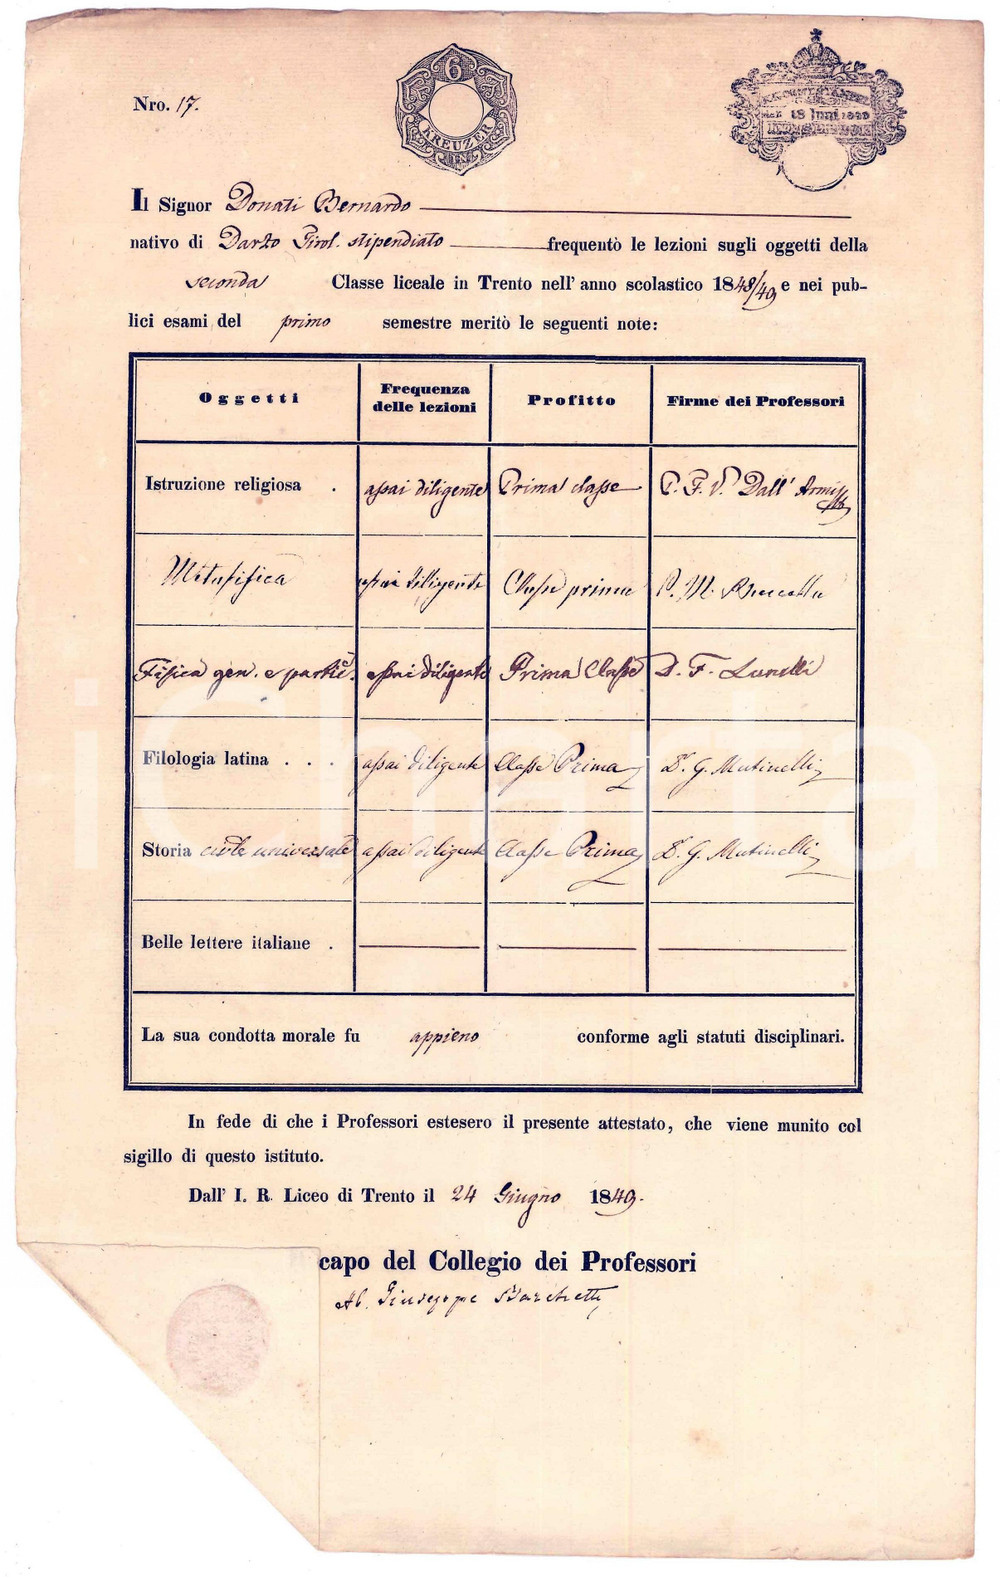 Nro. 17.
6
KREUZER
18 Juni 1829
Il Signor Donati Bernardo
nativo di Darzo Tirol. stipendiato frequentò le lezioni sugli oggetti della
seconda Classe liceale in Trento nell' anno scolastico 1848/49 e nei pub-
blici esami del primo semestre meritò le seguenti note:
Oggetti Frequenza delle lezioni Profitto Firme dei Professori
Istruzione religiosa . assai diligente Prima classe P. F. V. Dall' Armi
Metafisica assai diligente Classe prima P. M.
Fisica gen. e partic. assai diligente Prima Classe D. F. Lunelli
Filologia latina . . . assai diligente Classe Prima D. G. Mutinelli
Storia civile universale assai diligente Classe Prima D. G. Mutinelli
Belle lettere italiane .
La sua condotta morale fu appieno conforme agli statuti disciplinari.
In fede di che i Professori estesero il presente attestato, che viene munito col
sigillo di questo istituto.
Dall' I. R. Liceo di Trento il 24 Giugno 1849.
capo del Collegio dei Professori
Ab. Giuseppe Barchetti